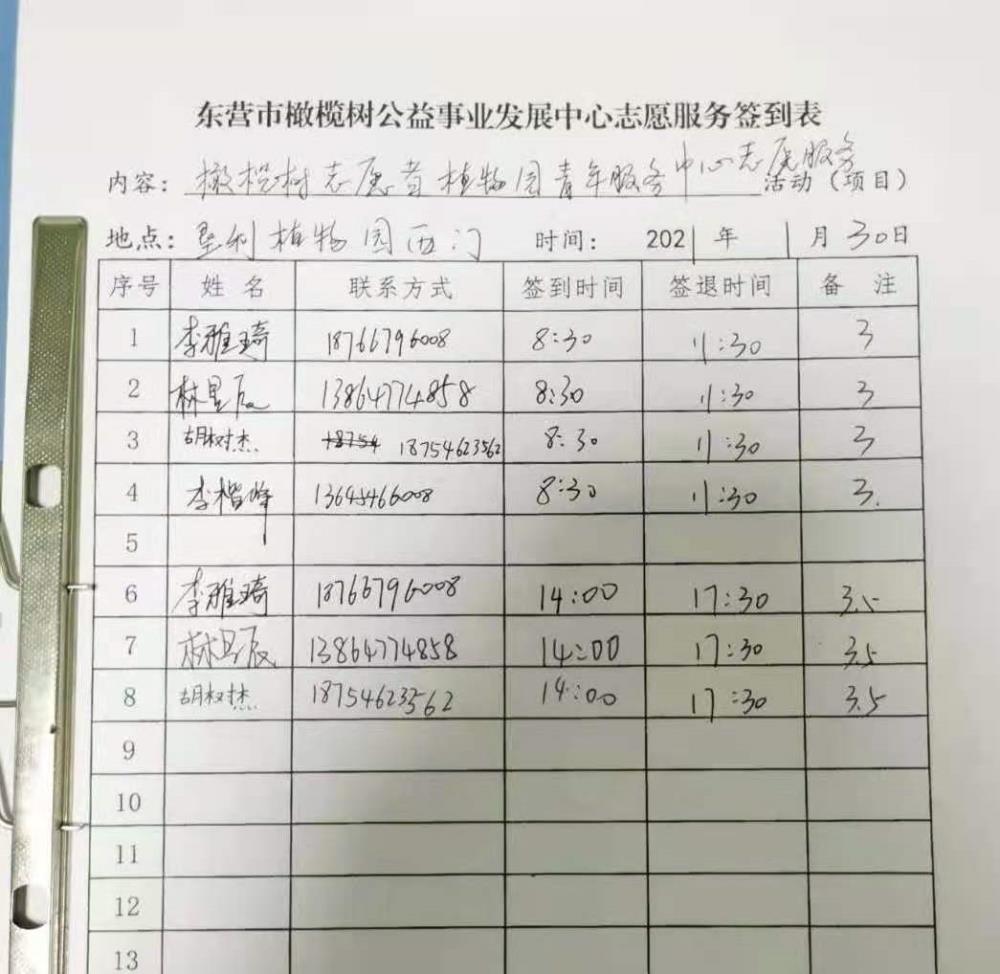 东营市橄榄树公益事业发展中心志愿服务签到表
内容：橄榄树志愿者植物园青年服务中心志愿服务活动（项目）
地点：垦利植物园西门 时间： 2021 年 1 月 30日
序号 姓 名 联系方式 签到时间 签退时间 备 注
1 李雅琦 18766796008 8:30 11:30 3
2 林星辰 13864774858 8:30 11:30 3
3 胡树杰 18754 18754623562 8:30 11:30 3
4 李楷峰 13645466008 8:30 11:30 3.
5
6 李雅琦 18766796008 14:00 17:30 3.5
7 林星辰 13864774858 14:00 17:30 3.5
8 胡树杰 18754623562 14:00 17:30 3.5
9
10
11
12
13